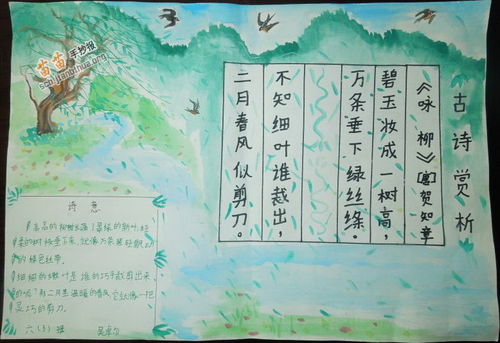 古诗赏析
《咏柳》[唐]贺知章
碧玉妆成一树高，
万条垂下绿丝绦。
不知细叶谁裁出，
二月春风似剪刀。
诗意
高高的柳树长满了翠绿的新叶，轻
柔的柳枝垂下来，就像万条轻轻飘动
的绿色丝带。
细细的嫩叶是谁的巧手裁剪出来
的呢？有二月里温暖的春风，它就像一把
灵巧的剪刀。
六（3）班
苗苗手抄报